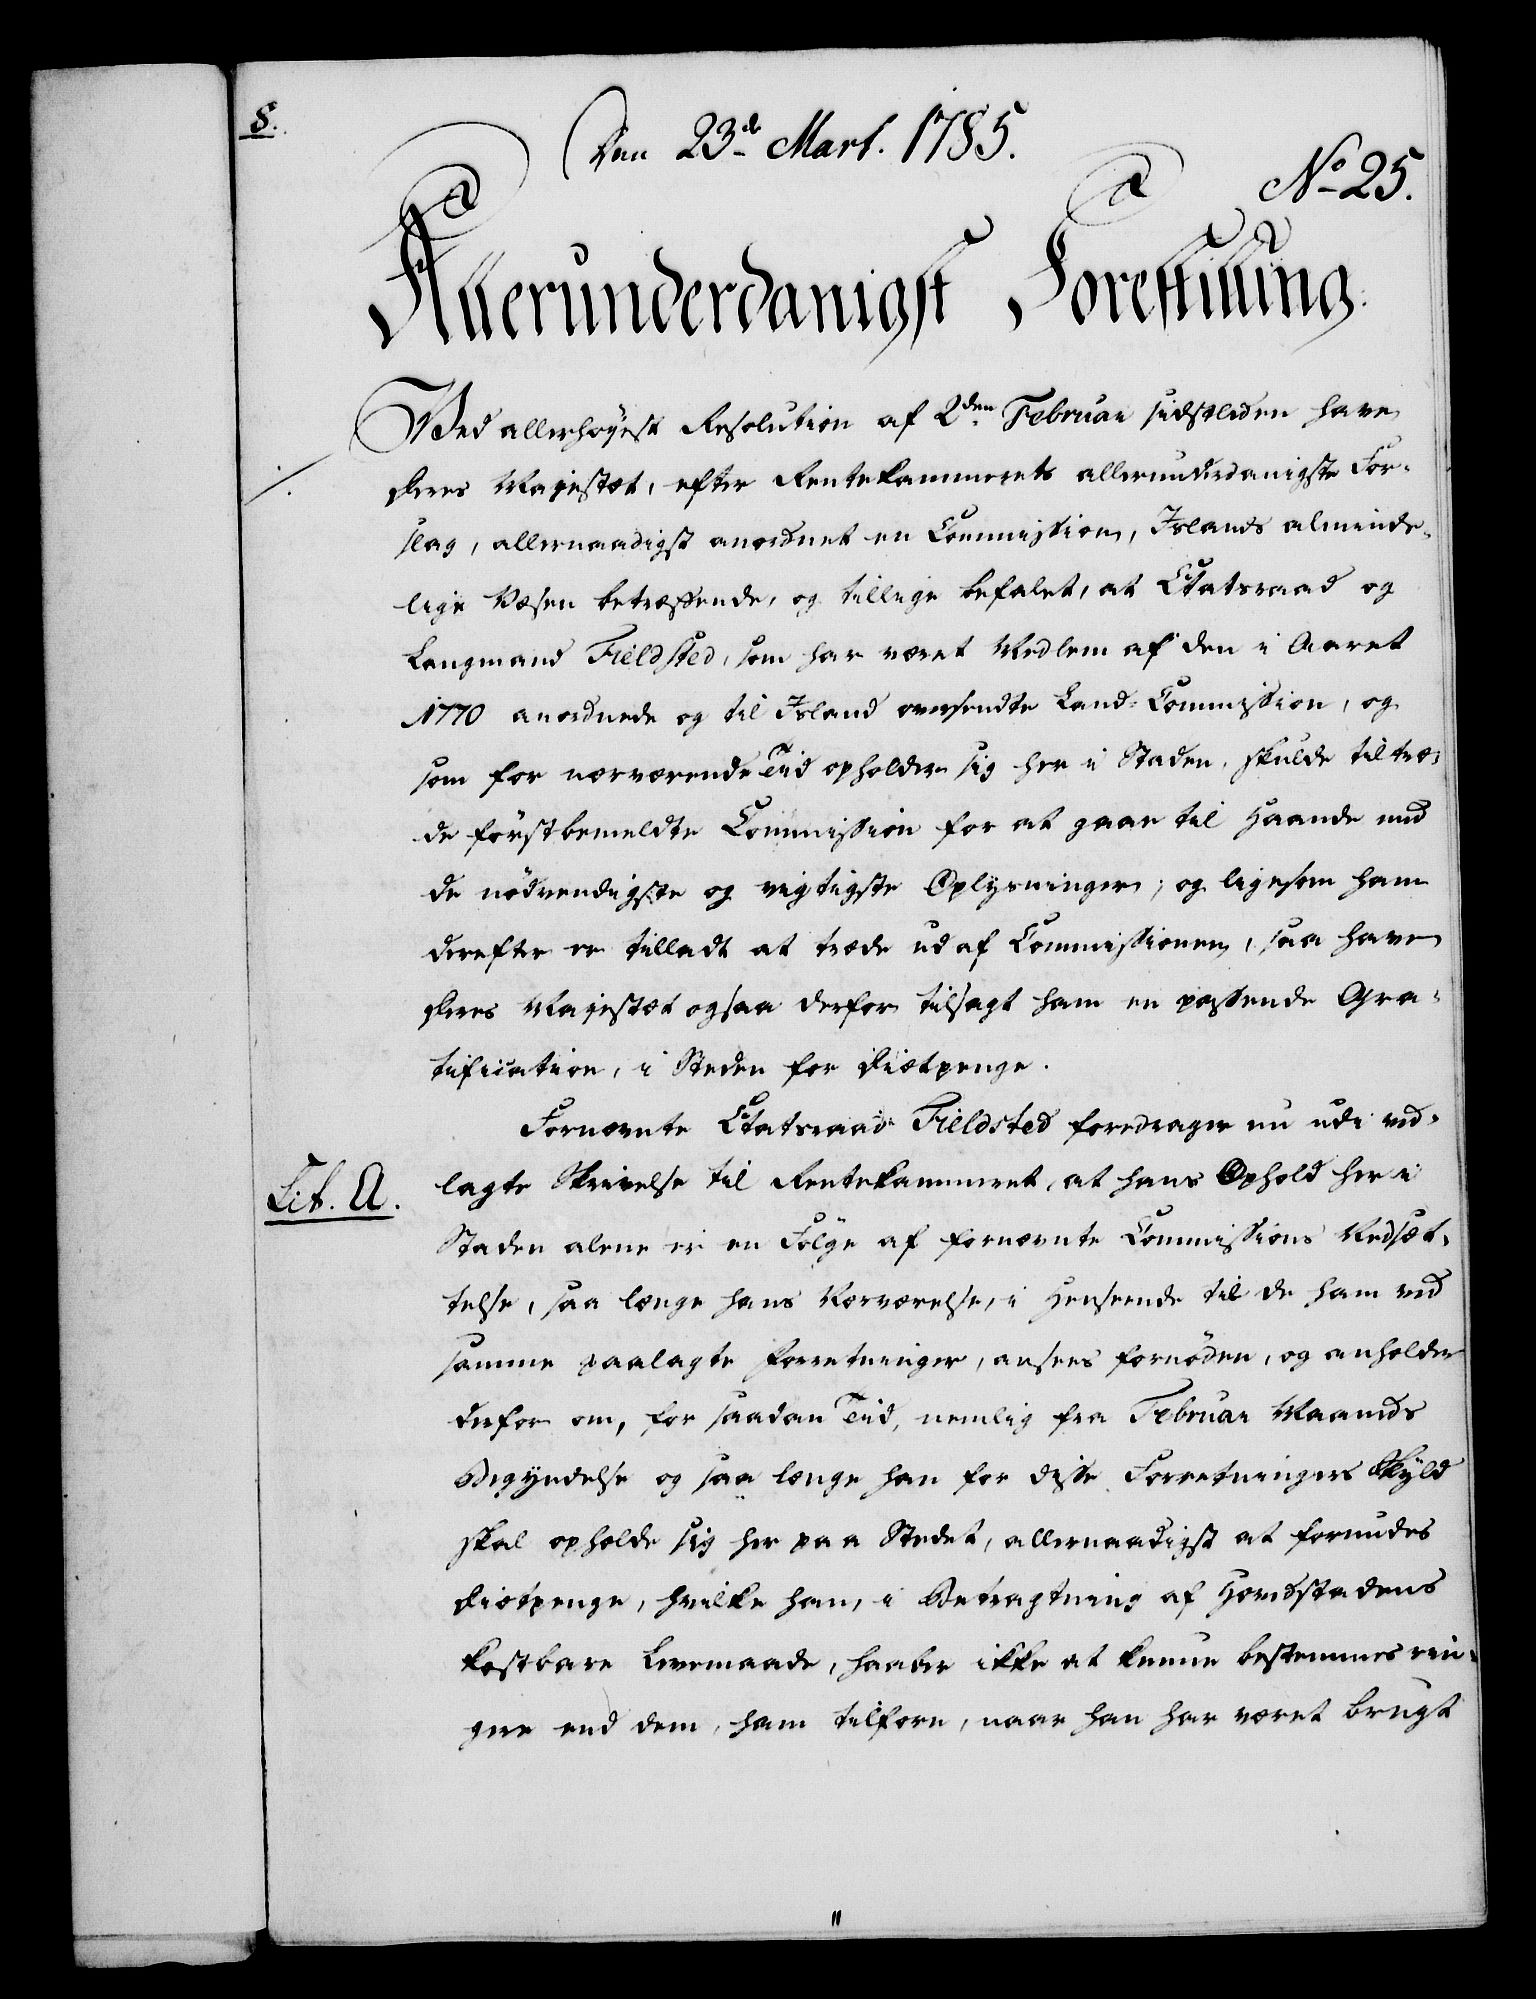 8.
Den 23de Mart. 1785.
No 25.
Allerunderdanigst Forestilling.
Ved allerhöyest Resolution af 2den Februar sidstleden have
Deres Majestæt, efter Rentekammerets allerunderdanigste For-
slag, allernaadigst anordnet en Commission, Islands alminde-
lige Væsen betræffende, og tillige befalet, at Etatsraad og
Laugmand Fieldsted, som har været Medlem af den i Aaret
1770 anordnede og til Island oversendte Land-Commission, og
som for nærværende Tiid opholder sig her i Staden, skulde tiltræ-
de förstbemeldte Commission for at gaae til Haande med
de nödvendigste og vigtigste Oplysninger; og ligesom ham
derefter er tilladt at træde ud af Commissionen, saa have
Deres Majestæt ogsaa derfor tilsagt ham en passende Gra-
tification, i Steden for Diætpenge.
Fornævnte Etatsraad Fieldsted foredrager nu udi ved-
Lit. A.
lagte Skrivelse til Rentekammeret, at hans Ophold her i
Staden alene er en Fölge af fornævnte Commissions Nedsæt-
telse, saa længe hans Nærværelse, i Henseende til de ham ved
samme paalagte Forretninger, ansees fornöden, og anholder
derfor om, for saadan Tiid, nemlig fra Februar Maaneds
Begyndelse og saa længe han for disse Forretningers Skyld
skal opholde sig her paa Stedet, allernaadigst at forundes
Diætpenge, hvilke han, i Betragtning af Hovedstadens
kostbare Levemaade, haaber ikke at kunne bestemmes rin-
gere end dem, ham tilforn, naar han har været brugt